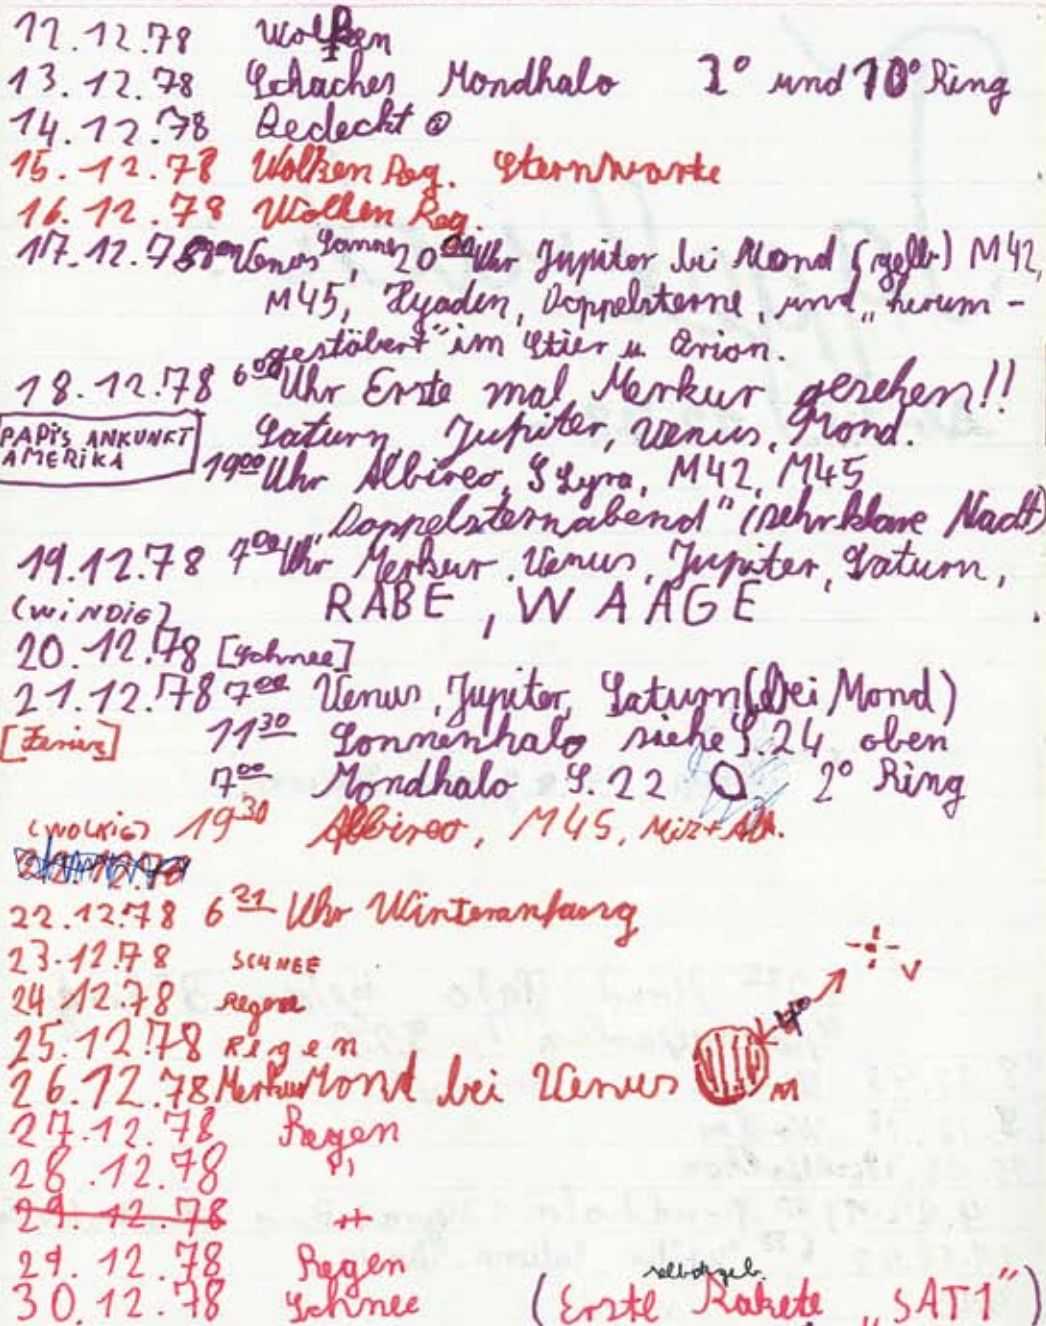 12.12.78 Wolken
13.12.78 Schaches Mondhalo 1° und 10° Ring
14.12.78 Bedeckt
15.12.78 Wolken Reg. Sternwarte
16.12.78 Wolken Reg.
17.12.78 Venus, 20 00 Uhr Jupiter bei Mond (gelb) M42,
M45, Hyaden, Doppelsterne, und „herum-
gestöbert" im Stier u. Orion.
18.12.78 6 00 Uhr Erste mal Merkur gesehen!!
PAPi's ANKUNFT
AMERiKA
Saturn, Jupiter, Venus, Mond.
19 00 Uhr Albireo, Lyra, M42, M45
„Doppelsternabend" (sehr klare Nacht)
19.12.78 7 00 Uhr Merkur, Venus, Jupiter, Saturn,
(WiNDiG) RABE, WAAGE
20.12.78 [Schnee]
21.12.78 7 00 Venus, Jupiter, Saturn (bei Mond)
[Ferien] 11 30 Sonnenhalo siehe S.24 oben
7 00 Mondhalo S.22 2° Ring
(WOLKiG) 19 30 Albireo, M45, Miz+Alk.
22.12.78 6 21 Uhr Winteranfang
23.12.78 SCHNEE
24.12.78 Regen
25.12.78 Regen
26.12.78 Merkur Mond bei Venus M 4° V
27.12.78 Regen
28.12.78 "
29.12.78 "
29.12.78 Regen
30.12.78 Schnee (Erste selbstgeb. Rakete „SAT1")